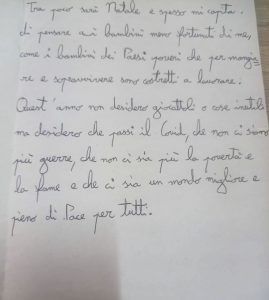 Tra poco sarà Natale e spesso mi capita
di pensare ai bambini meno fortunati di me,
come i bambini dei Paesi poveri che per mangia-
re e sopravvivere sono costretti a lavorare.
Quest'anno non desidero giocattoli o cose inutili
ma desidero che passi il Covid, che non ci siano
più guerre, che non ci sia più la povertà e
la fame e che ci sia un mondo migliore e
pieno di Pace per tutti.